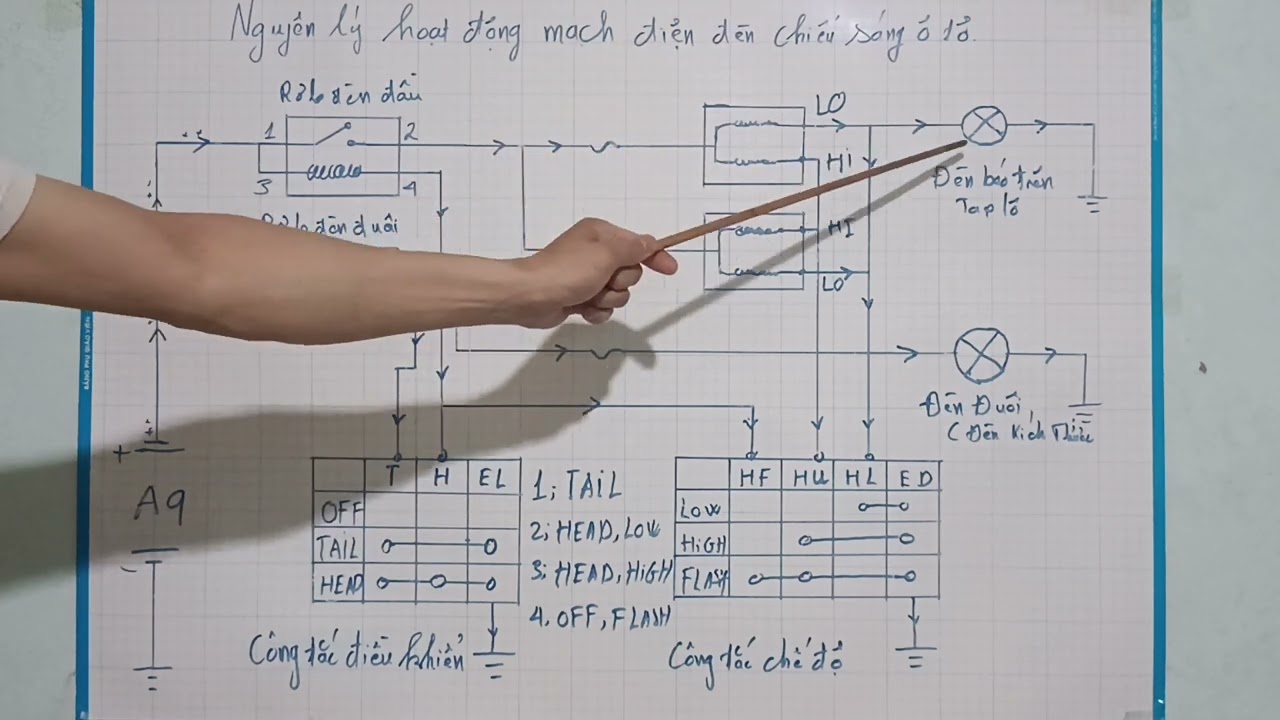 Nguyên lý hoạt động mạch điện đèn chiếu sáng ô tô.
Rơle đèn đầu
1
2
3
4
LO
Hi
Đèn báo trên
Tap lô
Rơle đèn đuôi
HI
LO
Đèn Đuôi,
(Đèn Kích Thước
+
A9
-
T H EL
OFF
TAIL
HEAD
1; TAIL
2; HEAD, LOW
3; HEAD, HiGH
4. OFF, FLASH
HF HU HL ED
LOW
HiGH
FLASH
Công tắc điều khiển
Công tắc chế độ